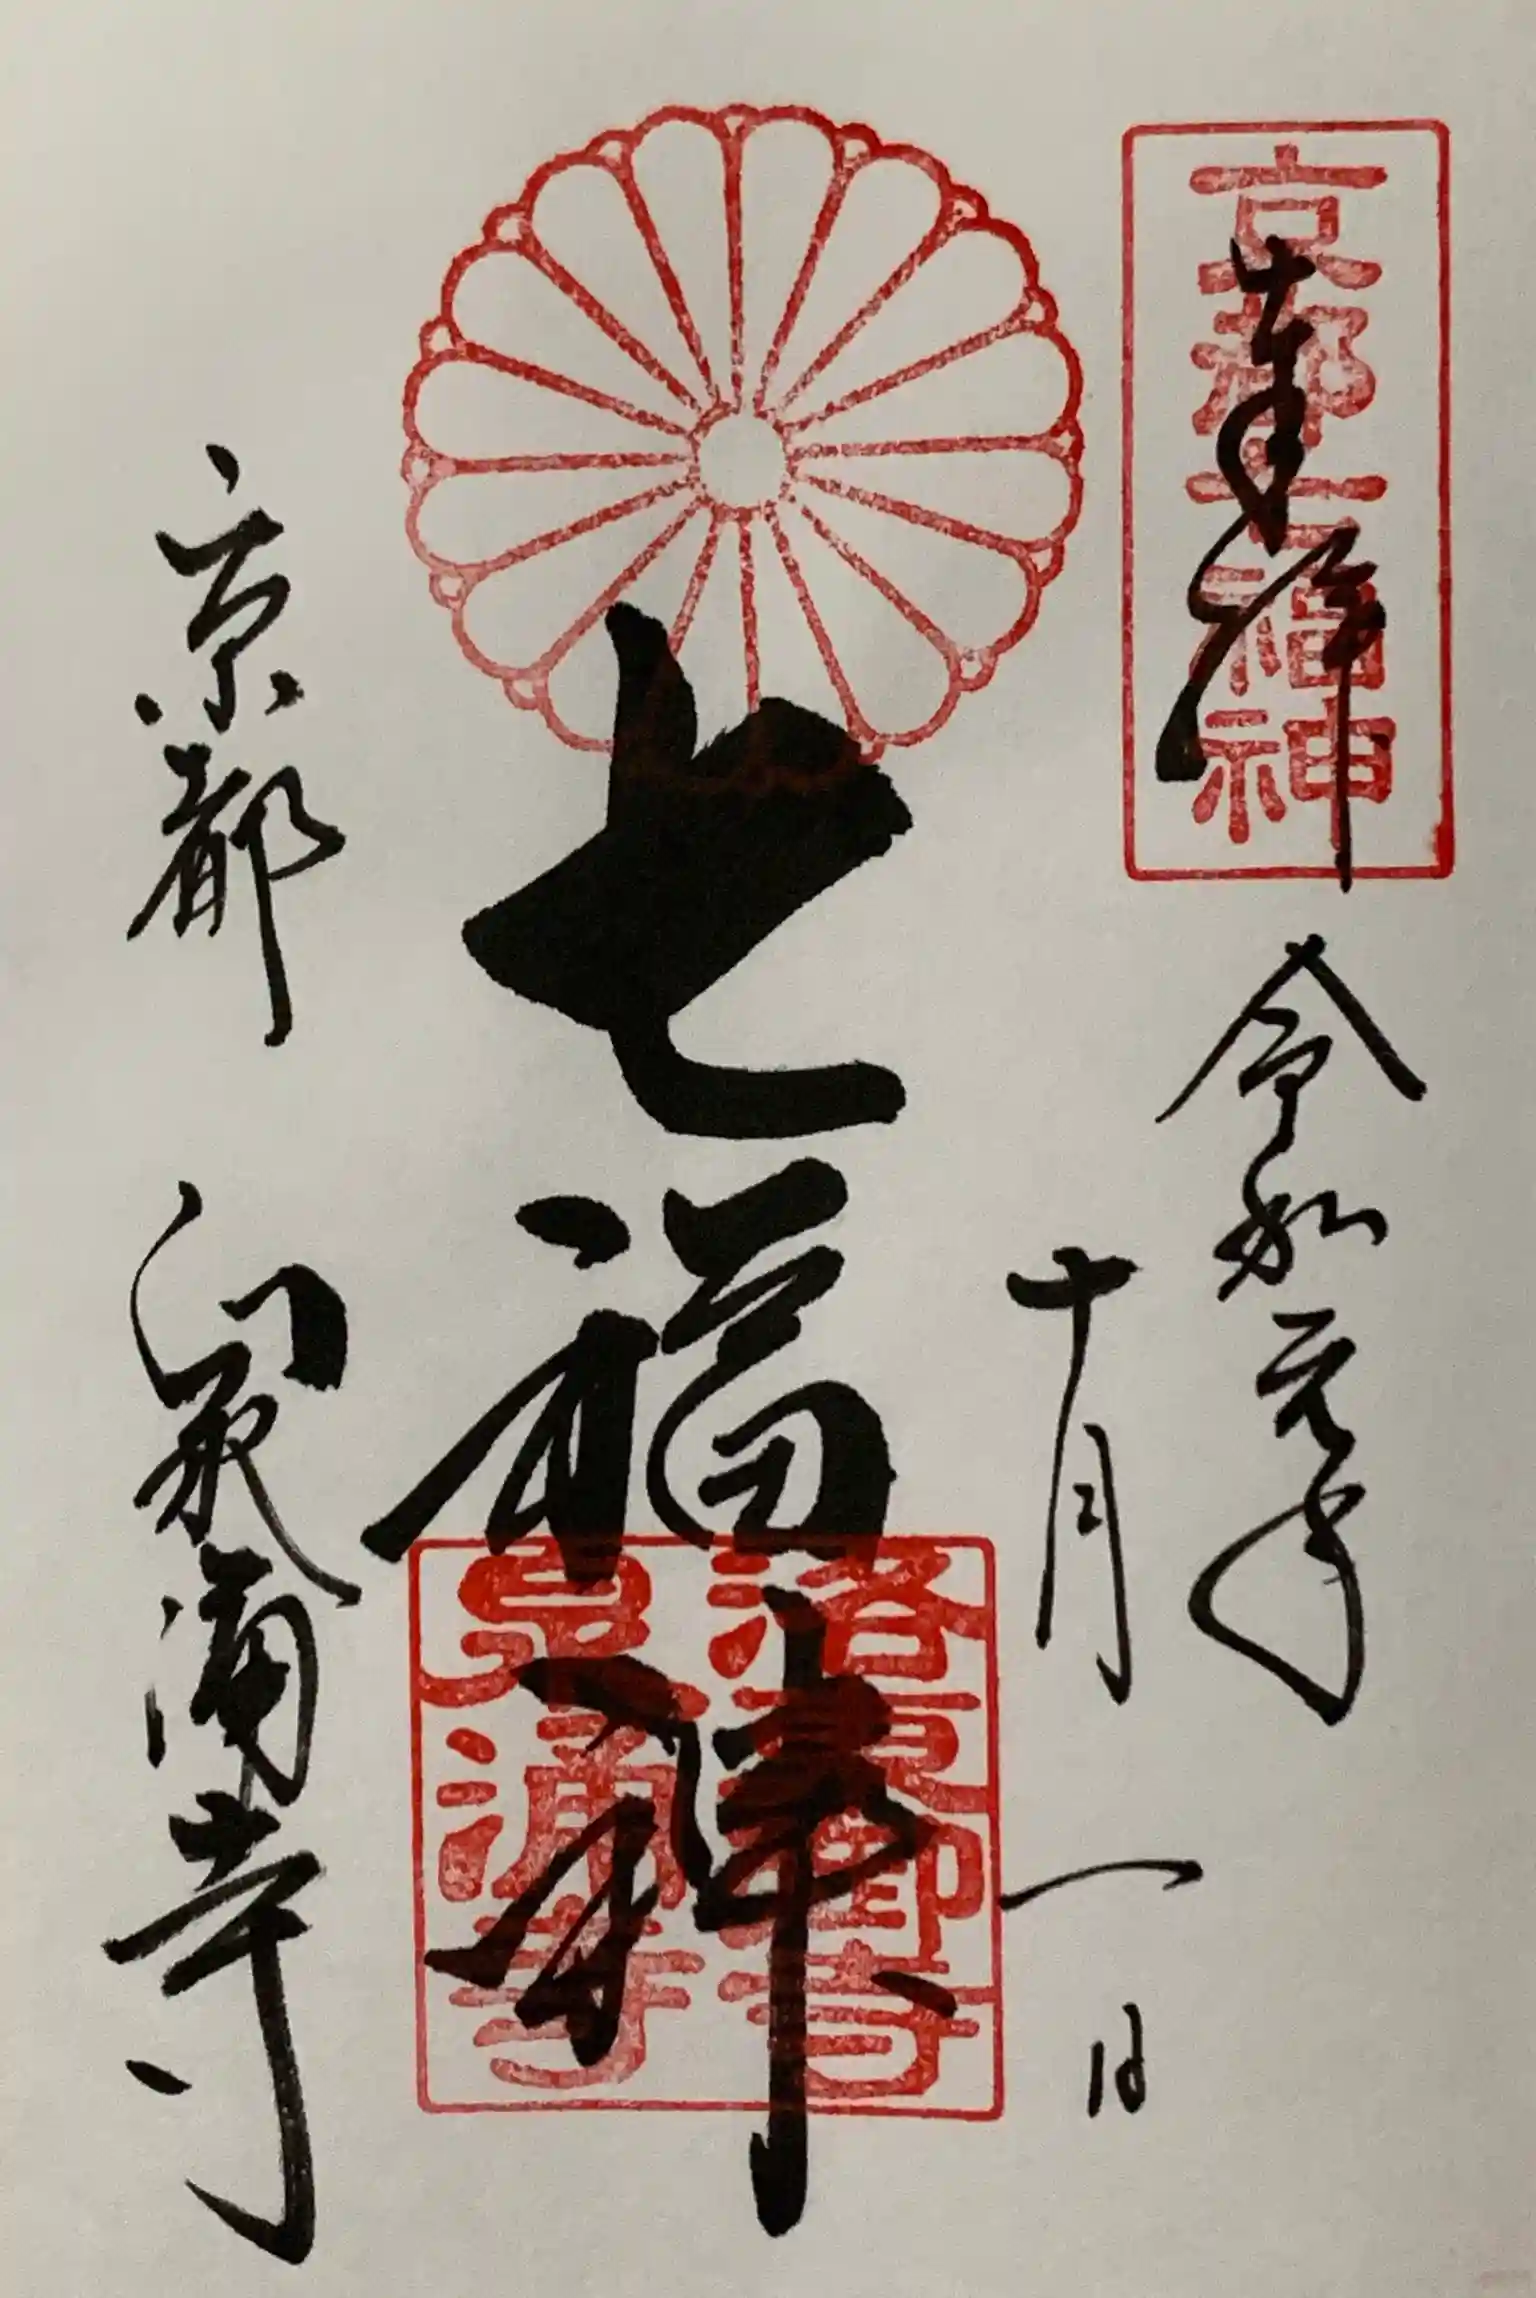 奉拝
京都七福神
令和元年
十月一日
七福神
洛東御寺
泉涌寺
京都 泉涌寺